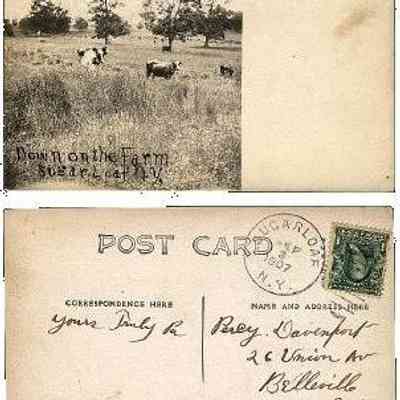 Down on the Farm
Sugar Loaf N.Y.
POST CARD
SUGARLOAF
SEP
3
1907
N.Y.
CORRESPONDENCE HERE
NAME AND ADDRESS HERE
Yours Truly Pa
Percy Davenport
26 Union Av
Belleville